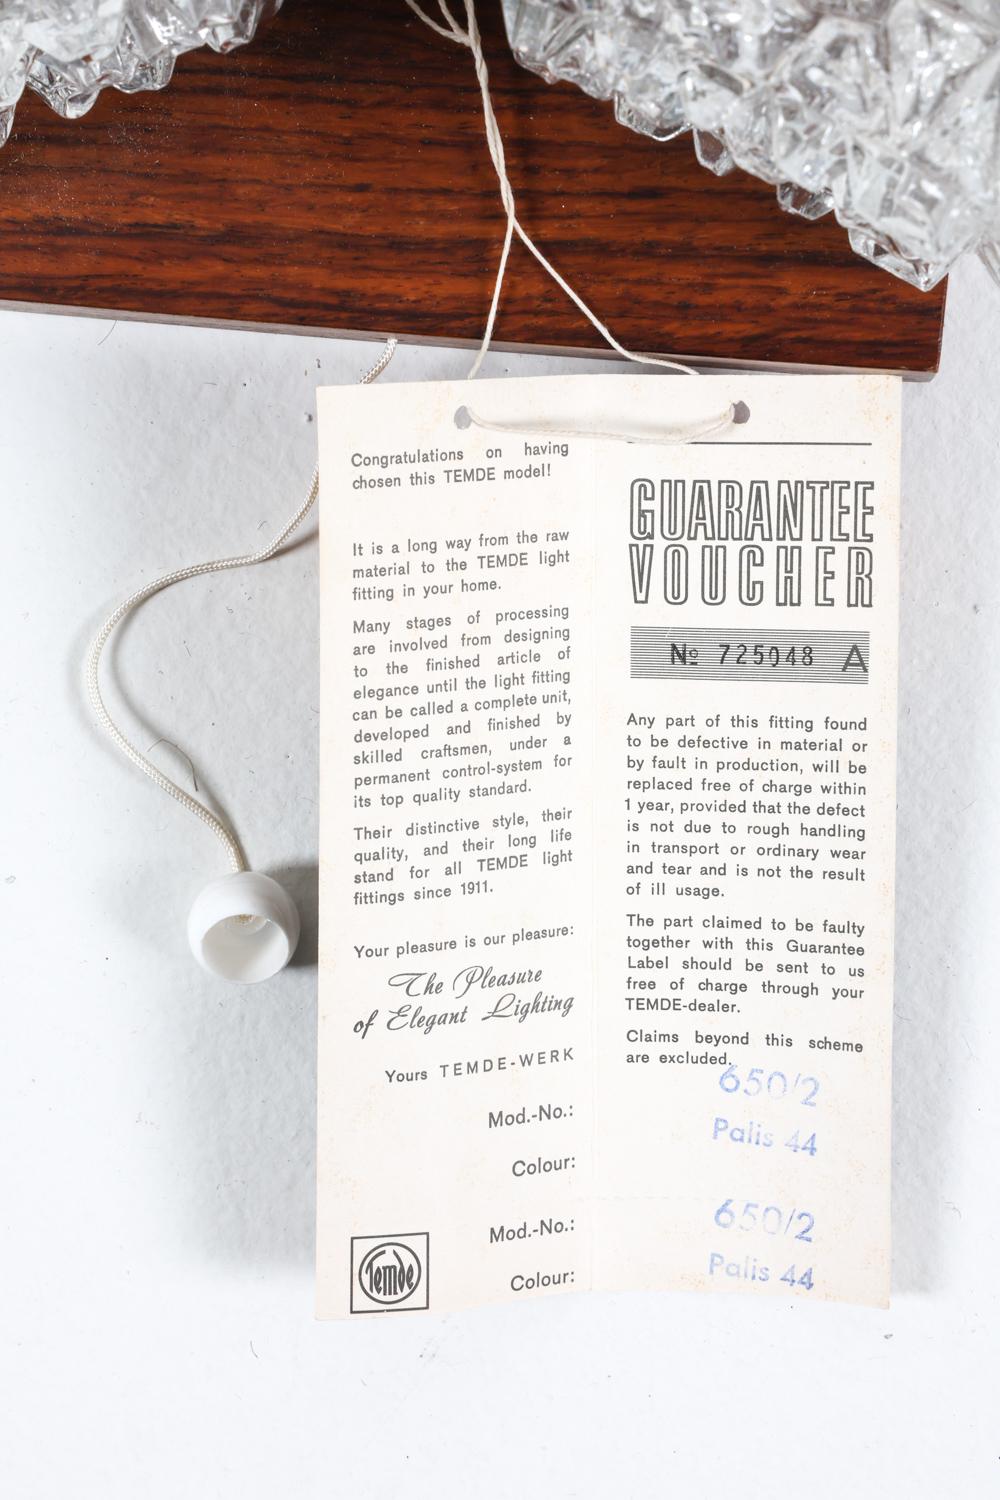 Congratulations on having
chosen this TEMDE model!
It is a long way from the raw
material to the TEMDE light
fitting in your home.
Many stages of processing
are involved from designing
to the finished article of
elegance until the light fitting
can be called a complete unit,
developed and finished by
skilled craftsmen, under a
permanent control-system for
its top quality standard.
Their distinctive style, their
quality, and their long life
stand for all TEMDE light
fittings since 1911.
Your pleasure is our pleasure:
The Pleasure
of Elegant Lighting
Yours TEMDE-WERK
Mod.-No.:
Colour:
Mod.-No.:
Colour:
Temde
GUARANTEE
VOUCHER
№ 725948 A
Any part of this fitting found
to be defective in material or
by fault in production, will be
replaced free of charge within
1 year, provided that the defect
is not due to rough handling
in transport or ordinary wear
and tear and is not the result
of ill usage.
The part claimed to be faulty
together with this Guarantee
Label should be sent to us
free of charge through your
TEMDE-dealer.
Claims beyond this scheme
are excluded.
650/2
Palis 44
650/2
Palis 44